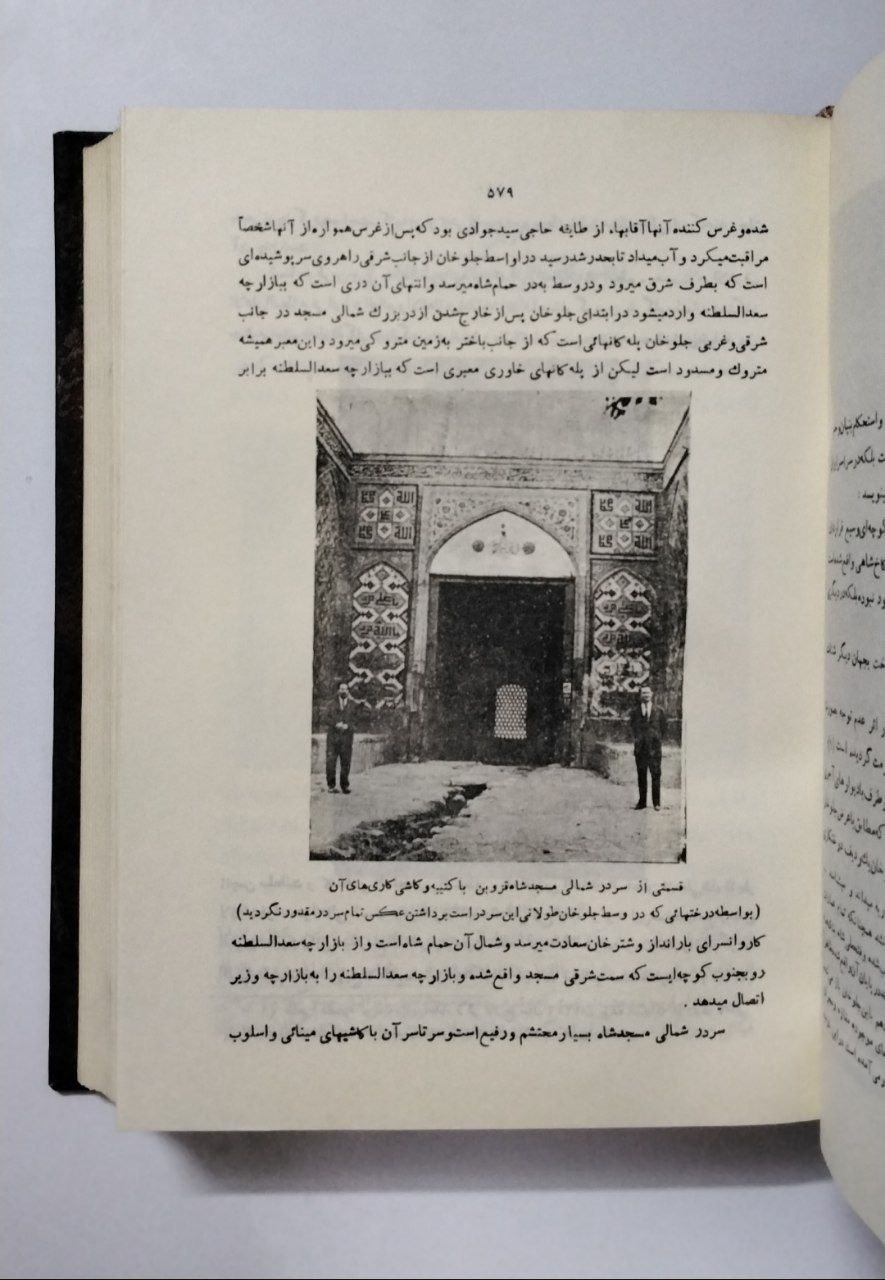 ۵۷۹
شده و غرس کننده آنها آقابها، از طایفه حاجی سید جوادی بود که پس از غرس همواره از آنها شخصاً
مراقبت میکرد و آب میداد تا بحد رشد رسید در اواسط جلوخان از جانب شرقی راهروی سرپوشیده‌ای
است که بطرف شرق میرود و در وسط به‌در حمام شاه میرسد و انتهای آن دری است که ببازارچه
سعدالسلطنه وارد میشود در ابتدای جلوخان پس از خارج شدن از در بزرك شمالی مسجد در جانب
شرقی و غربی جلوخان پله کانهائی است که از جانب باختر به‌زمین متروکی میرود و این معبر همیشه
متروك و مسدود است لیکن از پله کانهای خاوری معبری است که ببازارچه سعدالسلطنه برابر
قسمتی از سردر شمالی مسجد شاه قزوین با کتیبه و کاشی کاری‌های آن
(بواسطه درختهائی که در وسط جلوخان طولانی این سردر است برداشتن عکس تمام سردر مقدور نگردید)
کاروانسرای بارانداز و شترخان سعادت میرسد و شمال آن حمام شاه است و از بازارچه سعدالسلطنه
رو بجنوب کوچه‌ایست که سمت شرقی مسجد واقع شده و بازارچه سعدالسلطنه را به بازارچه وزیر
اتصال میدهد .
سردر شمالی مسجد شاه بسیار محتشم و رفیع است و سرتاسر آن با کاشیهای مینائی و اسلوب
و استحکام بنیان و
ینویسد :
وچه‌ای وسیع
کاخ شاهی واقع شده
ود نبوده بلکه در دیگر
خت بجهان دیگر
ر اثر عدم توجه
مت گردیده است